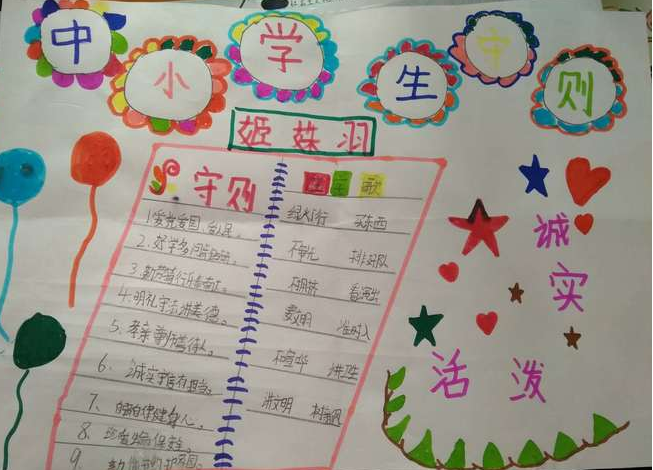 中小学生守则
姬姝羽
守则
三字歌
1.爱党爱国爱人民。
2.好学多问肯钻研。
3.勤劳笃行乐奉献。
4.明礼守法讲美德。
5.孝亲尊师善待人。
6、诚实守信有担当。
7、自强自律健身心。
8.珍爱生命保安全
9.勤俭节约护家园。
绿灯行 买东西
排好队
看演出
要文明 准时入
不喧哗 讲卫生
讲文明
诚实
活泼